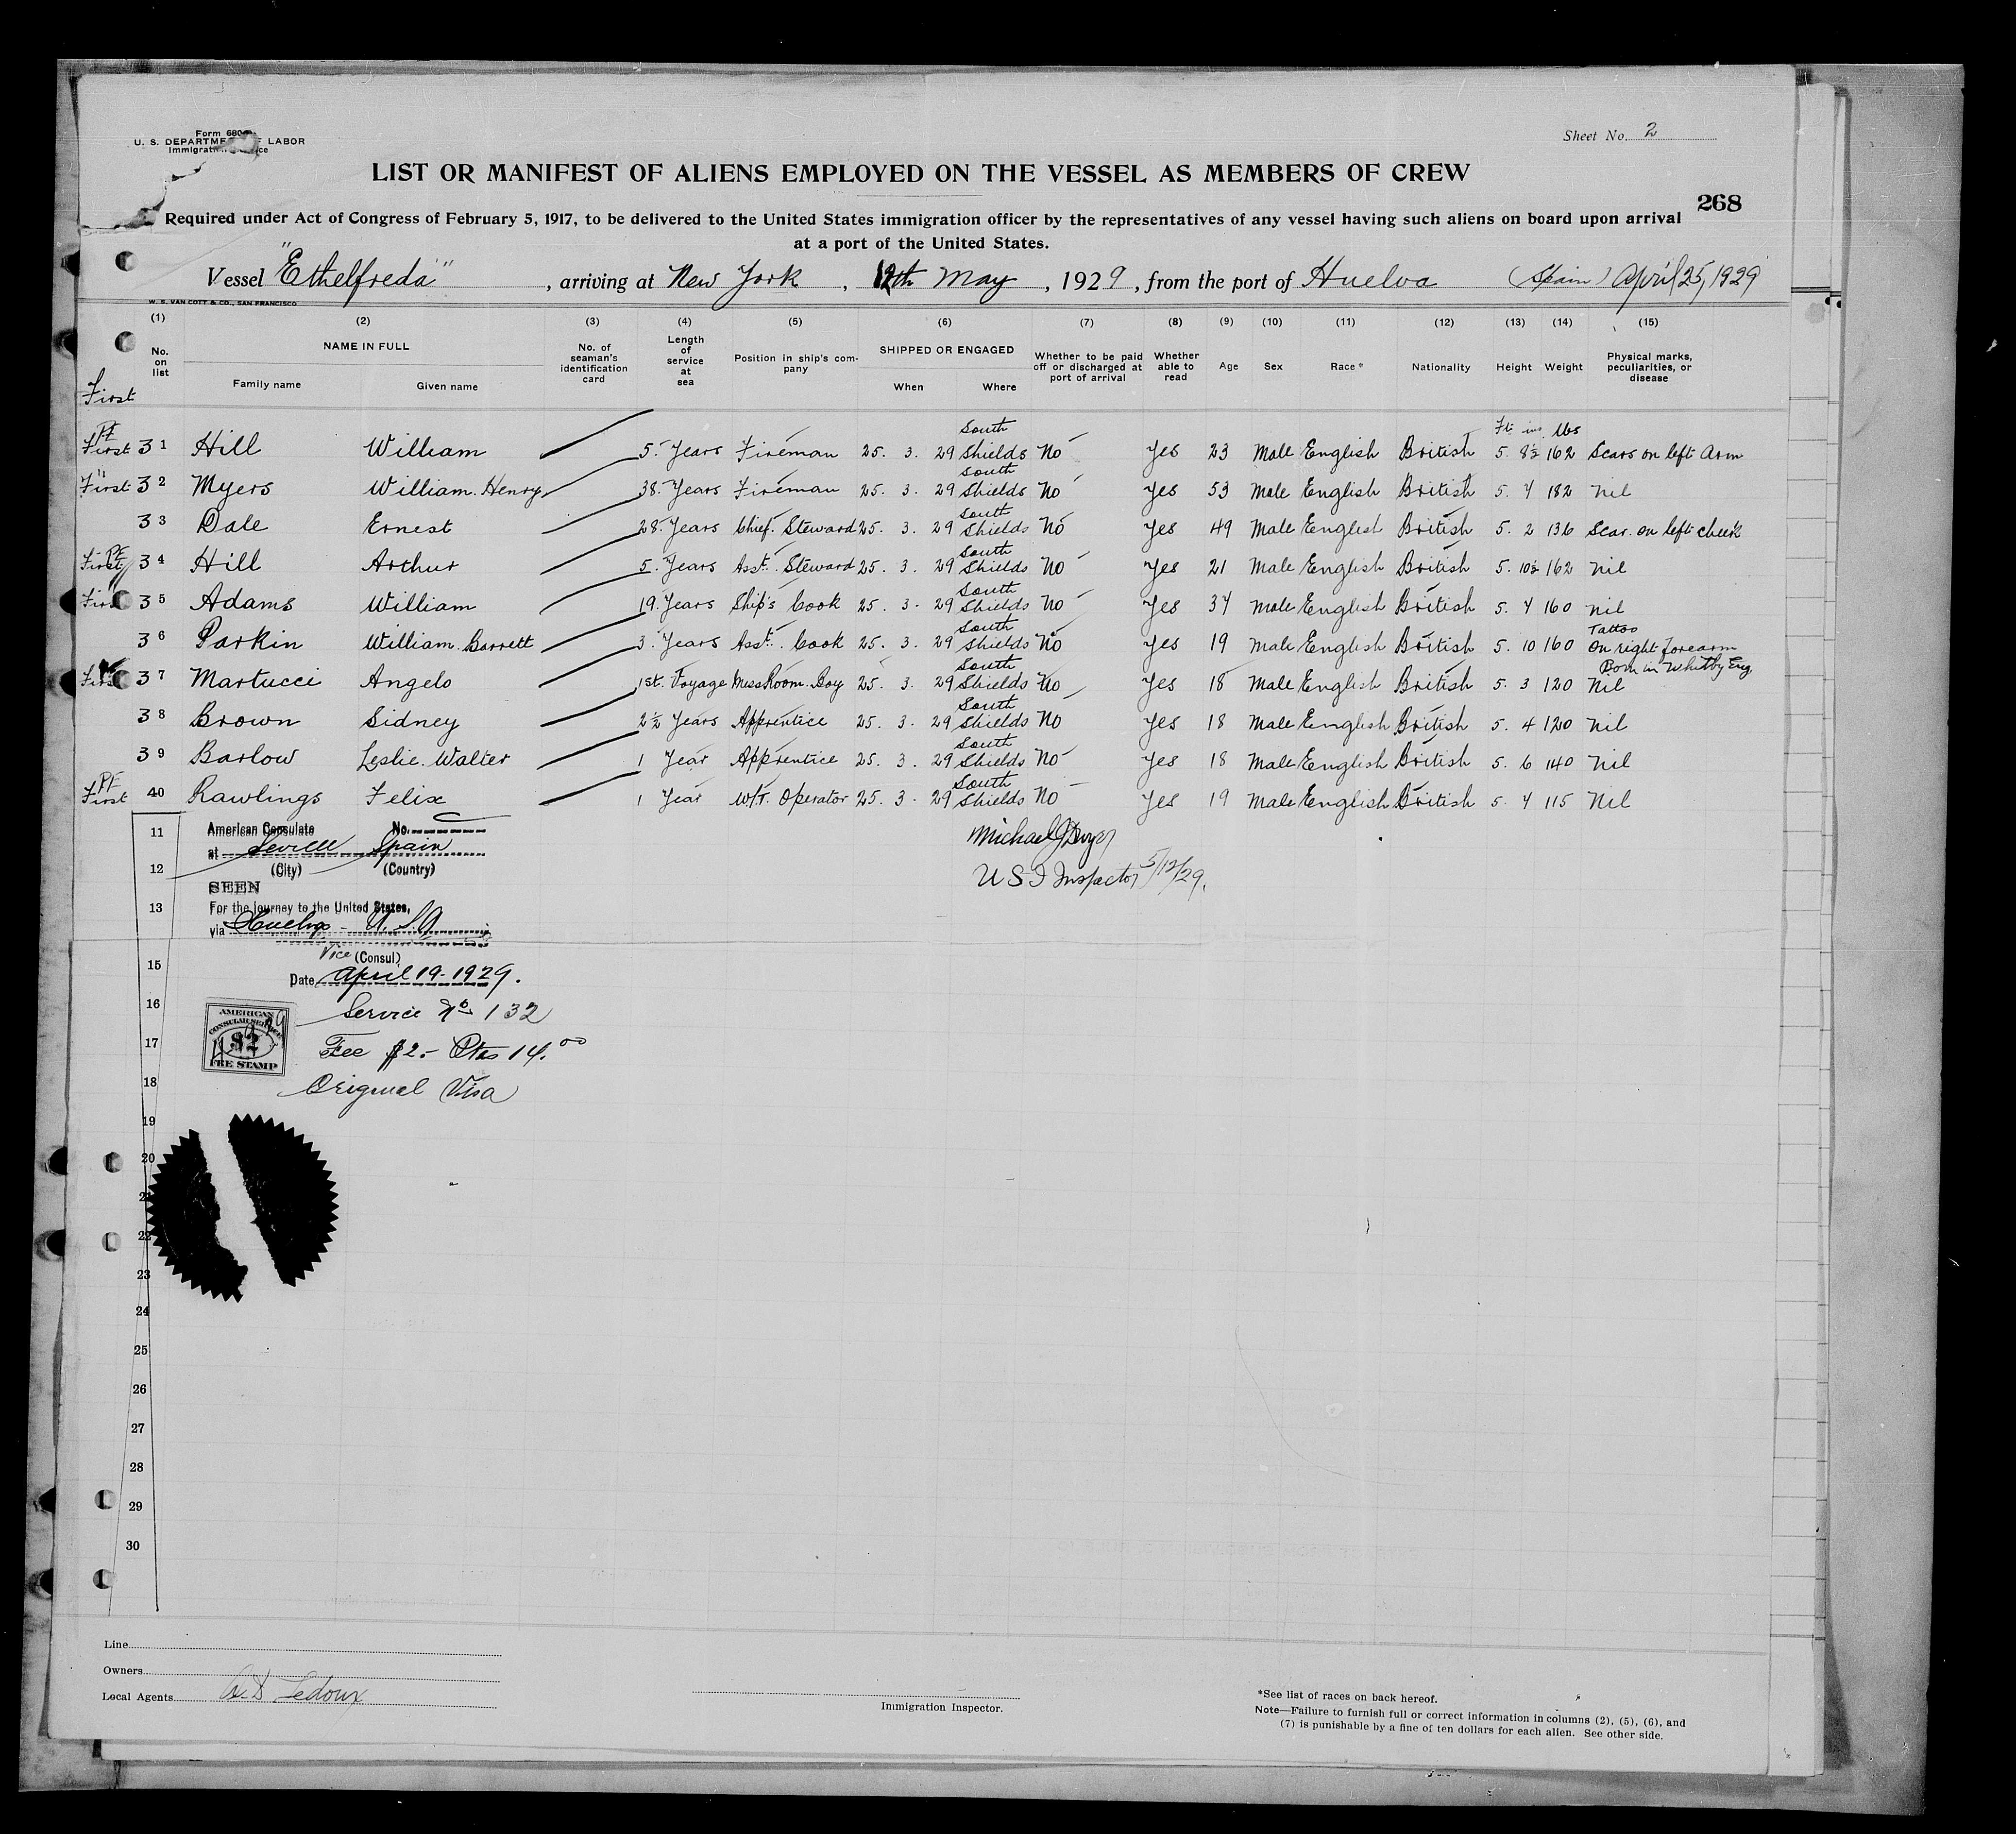 Form 680
U. S. DEPARTMENT OF LABOR
Immigration Service
Sheet No. 2
LIST OR MANIFEST OF ALIENS EMPLOYED ON THE VESSEL AS MEMBERS OF CREW
268
Required under Act of Congress of February 5, 1917, to be delivered to the United States immigration officer by the representatives of any vessel having such aliens on board upon arrival
at a port of the United States.
Vessel "Ethelfreda", arriving at New York, 12th May, 1929, from the port of Huelva (Spain) April 25, 1929
W. S. VAN COTT & CO., SAN FRANCISCO
(1) (2) (3) (4) (5) (6) (7) (8) (9) (10) (11) (12) (13) (14) (15)
No. on list NAME IN FULL Family name Given name No. of seaman's identification card Length of service at sea Position in ship's company SHIPPED OR ENGAGED When Where Whether to be paid off or discharged at port of arrival Whether able to read Age Sex Race* Nationality Height Weight Physical marks, peculiarities, or disease
First
Ft ins lbs
PF First 31 Hill William 5. Years Fireman 25. 3. 29 South Shields No Yes 23 Male English British 5. 8½ 162 Scars on left Arm
First 32 Myers William. Henry 38. Years Fireman 25. 3. 29 South Shields No Yes 53 Male English British 5. 4 182 nil
33 Dale Ernest 28. Years Chief. Steward 25. 3. 29 South Shields No Yes 49 Male English British 5. 2 136 Scar. on left cheek
PF First 34 Hill Arthur 5. Years Asst. Steward 25. 3. 29 South Shields No Yes 21 Male English British 5. 10½ 162 nil
First 35 Adams William 19. Years Ship's Cook 25. 3. 29 South Shields No Yes 34 Male English British 5. 4 160 nil
36 Parkin William. Barrett 3. Years Asst. Cook 25. 3. 29 South Shields No Yes 19 Male English British 5. 10 160 Tattoo On right forearm
First 37 Martucci Angelo 1st. Voyage Mess Room. Boy 25. 3. 29 South Shields No Yes 18 Male English British 5. 3 120 Born in Whitby Eng Nil
38 Brown Sidney 2½ Years Apprentice 25. 3. 29 South Shields No Yes 18 Male English British 5. 4 120 Nil
39 Barlow Leslie. Walter 1 Year Apprentice 25. 3. 29 South Shields No Yes 18 Male English British 5. 6 140 Nil
PF First 40 Rawlings Felix 1 Year W/T. Operator 25. 3. 29 South Shields No Yes 19 Male English British 5. 4 115 Nil
11 American Consulate No.
at Seville Spain
12 (City) (Country)
Michael J Dwyer
U S I Inspector 5/12/29.
SEEN
13 For the journey to the United States,
via Huelva - U.S.A.
Vice (Consul)
15 Date April 19-1929.
16 Service No 132
AMERICAN CONSULAR SERVICE $2 FEE STAMP
17 Fee $2.- Ptas 14.00
18 Original Visa
19
20
21
22
23
24
25
26
27
28
29
30
Line
Owners
Local Agents A.D Ledoux
Immigration Inspector.
*See list of races on back hereof.
Note—Failure to furnish full or correct information in columns (2), (5), (6), and
(7) is punishable by a fine of ten dollars for each alien. See other side.